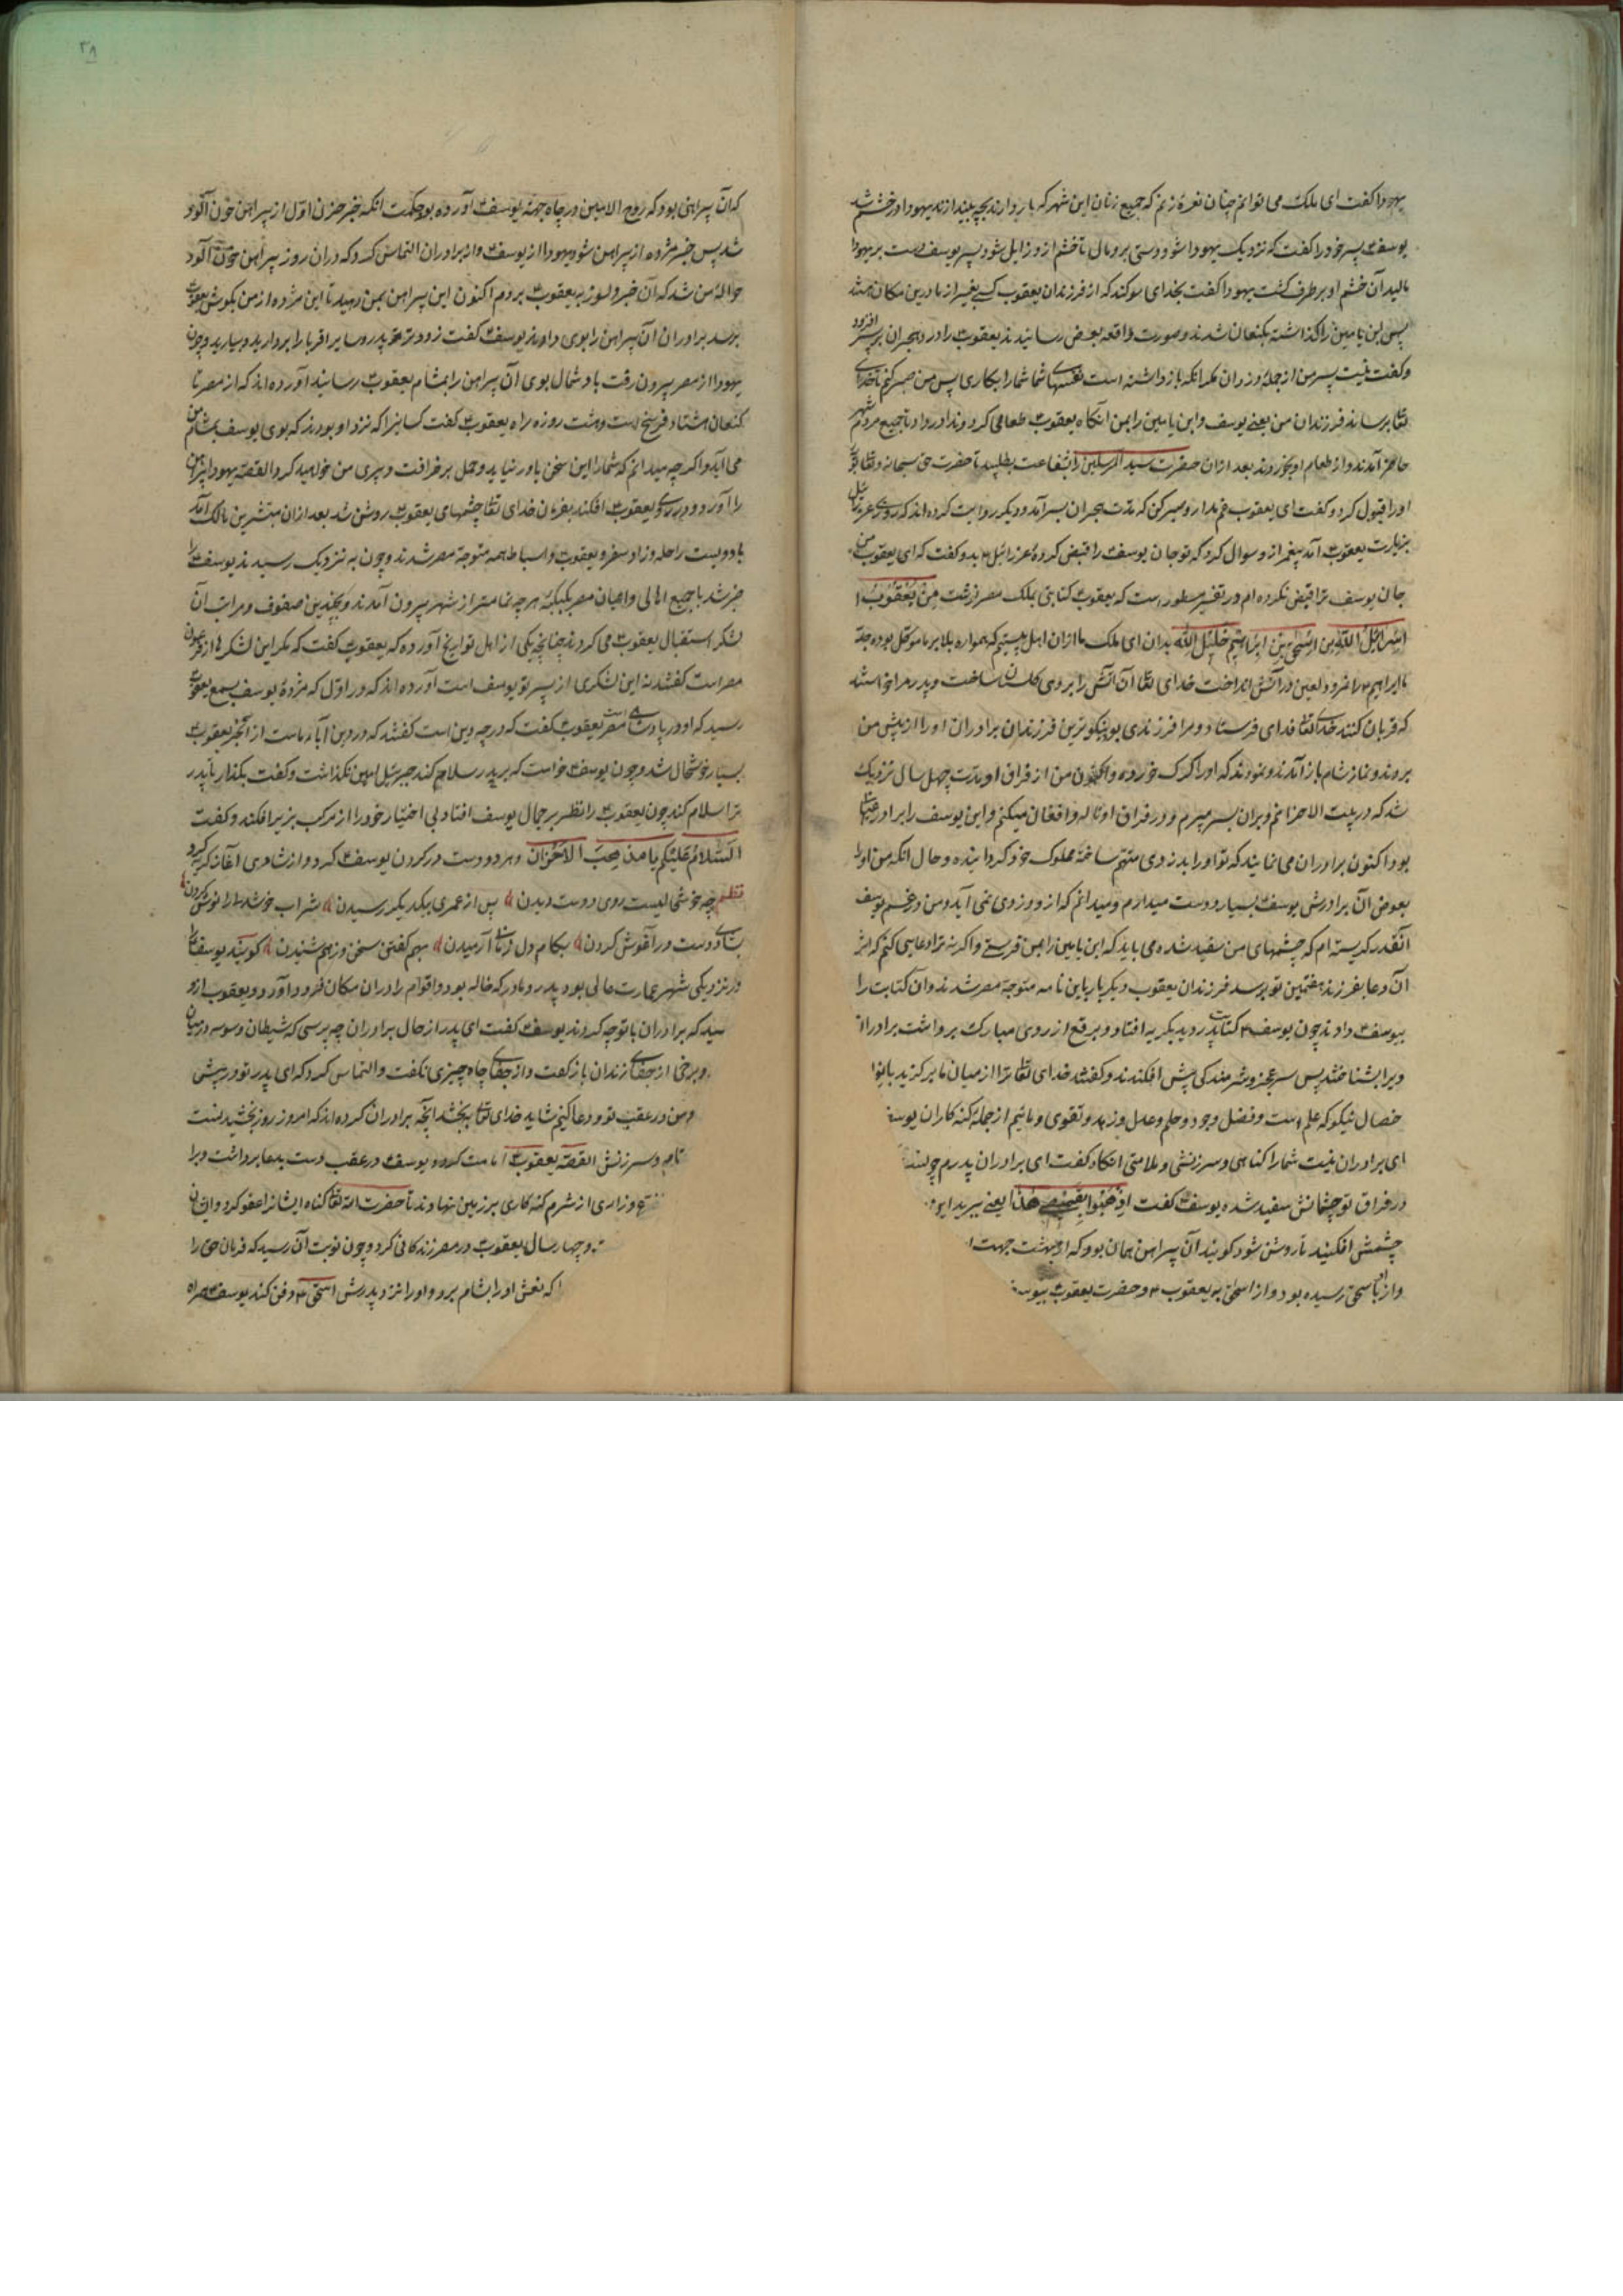 یهودا کفت ای ملک می توانم چنان نعرۀ زنم که جمیع زنان این شهر که بار دارند بچه بیندازند یهودا در خشم شد
یوسف ۴ پسر خود را کفت که نزدیک یهودا شو و دستی برو مال تا خشم ازو زایل شود پسر یوسف دست بر یهودا
مالید آن خشم او بر طرف کشت یهودا کفت بخدای سوکند که از فرزندان یعقوب کسی بغیر از ما درین مکان هست
پس ابن یامین را کذاشته بکنعان شدند و صورت واقعه بعرض رسانیدند یعقوب ۴ را درد هجران بر سر افزود
و کفت نیست پسر من از جملۀ دزدان مکر انکه باز داشته است نفسهای شما شما را بکاری پس من صبر کنم تا خدای
تعالی برساند فرزندان من یعنی یوسف و ابن یامین را بمن انکاه یعقوب ۴ طعامی کرد و ندا در داد تا جمیع مردم شهر
حاضر آمدند و از طعام او بخوردند بعد ازان حضرت سید المرسلین را بشفاعت بطلبید تا حضرت حق سبحانه و تعالی توبۀ
او را قبول کرد و کفت ای یعقوب غم مدار و صبر کن که مدت هجران بسر آمد و دیکر روایت کرده اند که روزی عزرائیل
بزیارت یعقوب ۴ آمد پیغمبر ازو سوال کرد که تو جان یوسف ۴ را قبض کردۀ عزرائیل ۴ بدو کفت که ای یعقوب من
جان یوسف ترا قبض نکرده ام و در تفسیر مسطور است که یعقوب ۴ کتابتی بملک مصر نوشت مِنْ یَعْقُوْبَ
اِسْرَائِیْلُ اللّٰهِ بن اِسْحٰق بْنِ اِبْرَاهِیْم خَلِیْلُ اللّٰه بدان ای ملک ما ازان اهل بیتیم که همواره بلا بر ما موکل بوده جد
ما ابراهیم ۴ را نمرود لعین در آتش انداخت خدای تعالی آن آتش را بر وی کلستان ساخت و پدر مرا خواستند
که قربان کنند خدای تعالی فدای فرستاد و مرا فرزندی بود نیکوترین فرزندان برادران او را از پیش من
بردند و نماز شام باز آمدند و نمودند که او را کرک خورده و اکنون من از فراق او مدت چهل سال نزدیک
شد که در بیت الاحزانم و بران بسر میبرم و در فراق او ناله و افغان میکنم و این یوسف را برادر
بود اکنون برادران می نمایند که تو او را بدزدی متهم ساخته مملوک خود کردانیده و حال انکه من او را
بعوض آن برادرش یوسف ۴ بسیار دوست میدارم و میدانم که ازو دزدی نمی آید و من در غم یوسف
آنقدر کریسته ام که چشمهای من سفید شده می باید که ابن یامین را بمن فرستی و اکر نه ترا دعایی کنم که اثر
آن دعا بفرزند هفتمین تو برسد فرزندان یعقوب دیکر بار با این نامه متوجه مصر شدند و آن کتابت را
بیوسف ۴ دادند چون یوسف ۴ کتابت پدر دید بکریه افتاد و برقع از روی مبارک برداشت برادران
ویرا بشناختند پس سر عجز و شرمندکی پیش افکندند و کفتند خدای تعالی ترا از میان ما برکزید
خصال نیکو که علم است و فضل وجود و حلم و عدل و زهد و تقوی و مائیم از جملۀ کنه کاران یوسف
ای برادران نیست شما را کناهی و سرزنشی و ملامتی انکاه کفت ای برادران پدرم
در فراق تو چشمانش سفید شده یوسف ۴ کفت اِذْهَبُوْا بِقَمِیْصِیْ هٰذَا یعنی ببرید
چشمش افکنید تا روشن شود کویند آن پیراهن همان بود که از بهشت جهت
و ازو باسحق رسیده بود و از اسحق به یعقوب ۴ و حضرت یعقوب ۴
که آن پیراهنی بود که روح الامین در چاه جهة یوسف ۴ آورده بود حکمت انکه خبر حزن اوّل از پیراهن خون آلود
شد پس خبر مژده از پیراهن شود یهودا از یوسف ۴ و از برادران التماس کرد که دران روز پیراهن خون آلود
حوالۀ من شد که آن خبر دلسوز به یعقوب ۴ بردم اکنون این پیراهن بمن دهید تا این مژده از من بکوش یعقوب
برسد برادران آن پیراهن را بوی دادند یوسف ۴ کفت زود تر پدر و سایر اقربا را بردارید و بیارید و چون
یهودا از مصر بیرون رفت باد شمال بوی آن پیراهن را بمشام یعقوب ۴ رسانید آورده اند که از مصر تا
کنعان هشتاد فرسخ است و هشت روزه راه یعقوب ۴ کفت کسانیرا که نزد او بودند که بوی یوسف بمشام من
می آید و اکر چه میدانم که شما را این سخن باور نیاید و حمل بر خرافت و پیری من خواهید کرد القصه یهودا پیراهن
را آورد و در روی یعقوب ۴ افکند بفرمان خدای تعالی چشمهای یعقوب ۴ روشن شد بعد ازان مبشرین مالک آمد
با دویست راحله و زاد سفر و یعقوب ۴ و اسباط همه متوجه مصر شدند و چون به نزدیک رسیدند یوسف ۴ را
خبر شد با جمیع اهالی و اعیان مصر بکبکبۀ هر چه تمامتر از شهر بیرون آمدند و بچندین صفوف و مراتب آن
لشکر استقبال یعقوب ۴ می کردند چنانچه یکی از اهل تواریخ آورده که یعقوب ۴ کفت که مکر این لشکرها از فرعون
مصر است کفتند نه این لشکری از پسر تو یوسف است آورده اند که در اوّل که مژدۀ یوسف بسمع یعقوب
رسید که او در پادشاهی مصر است یعقوب ۴ کفت که در چه دین است کفتند که در دین آباء ماست از آنجهة یعقوب ۴
بسیار خوشحال شد و چون یوسف ۴ خواست که بر پدر سلام کند جبرئیل امین نکذاشت و کفت بکذار تا پدر
ترا سلام کند چون یعقوب ۴ را نظر بر جمال یوسف افتاد بی اختیار خود را از مرکب بزیر افکند و کفت
اَلسَّلامُ عَلَیْکُم یا مذهِبَ الاَحْزان و هر دو دست در کردن یوسف ۴ کرد و از شادی آغاز کریه کرد
نظم چه خوش حالیست روی دوست دیدن پس از عمری بیکدیکر رسیدن شراب خوشدلی را نوش کردن
بشادی دوست در آغوش کردن بکام دل زمانی آرمیدن بهم کفتن سخن وز هم شنیدن کویند یوسف ۴ را
در نزدیکی شهر عمارت عالی بود پدر و مادر که خاله بود و اقوام را دران مکان فرود آورد و یعقوب ازو
سید که برادران با تو چه کردند یوسف ۴ کفت ای پدر از حال برادران چه پرسی که شیطان وسوسه در میان
و برخی از جفای زندان باز کفت و از جفای چاه چیزی نکفت و التماس کرد که ای پدر تو در پیش
و من در عقب تو و دعا کنیم شاید خدای تعالی ببخشد آنچه برادران کرده اند که امروز روز بخشیدنست
و سرزنش القصّه یعقوب ۴ امامت کرد و یوسف ۴ در عقب دست بدعا برداشت و برا
ع و زاری از شرم کنه کاری بر زمین نهادند تا حضرت الله تعالی کناه ایشانرا عفو کرد و ایشان
و چهار سال یعقوب ۴ در مصر زندکانی کرد و چون نوبت آن رسید که فرمان حق را
که نعش او را بشام برد و او را نزد پدرش اسحق ۴ دفن کند یوسف ۴ همراه
۳۸